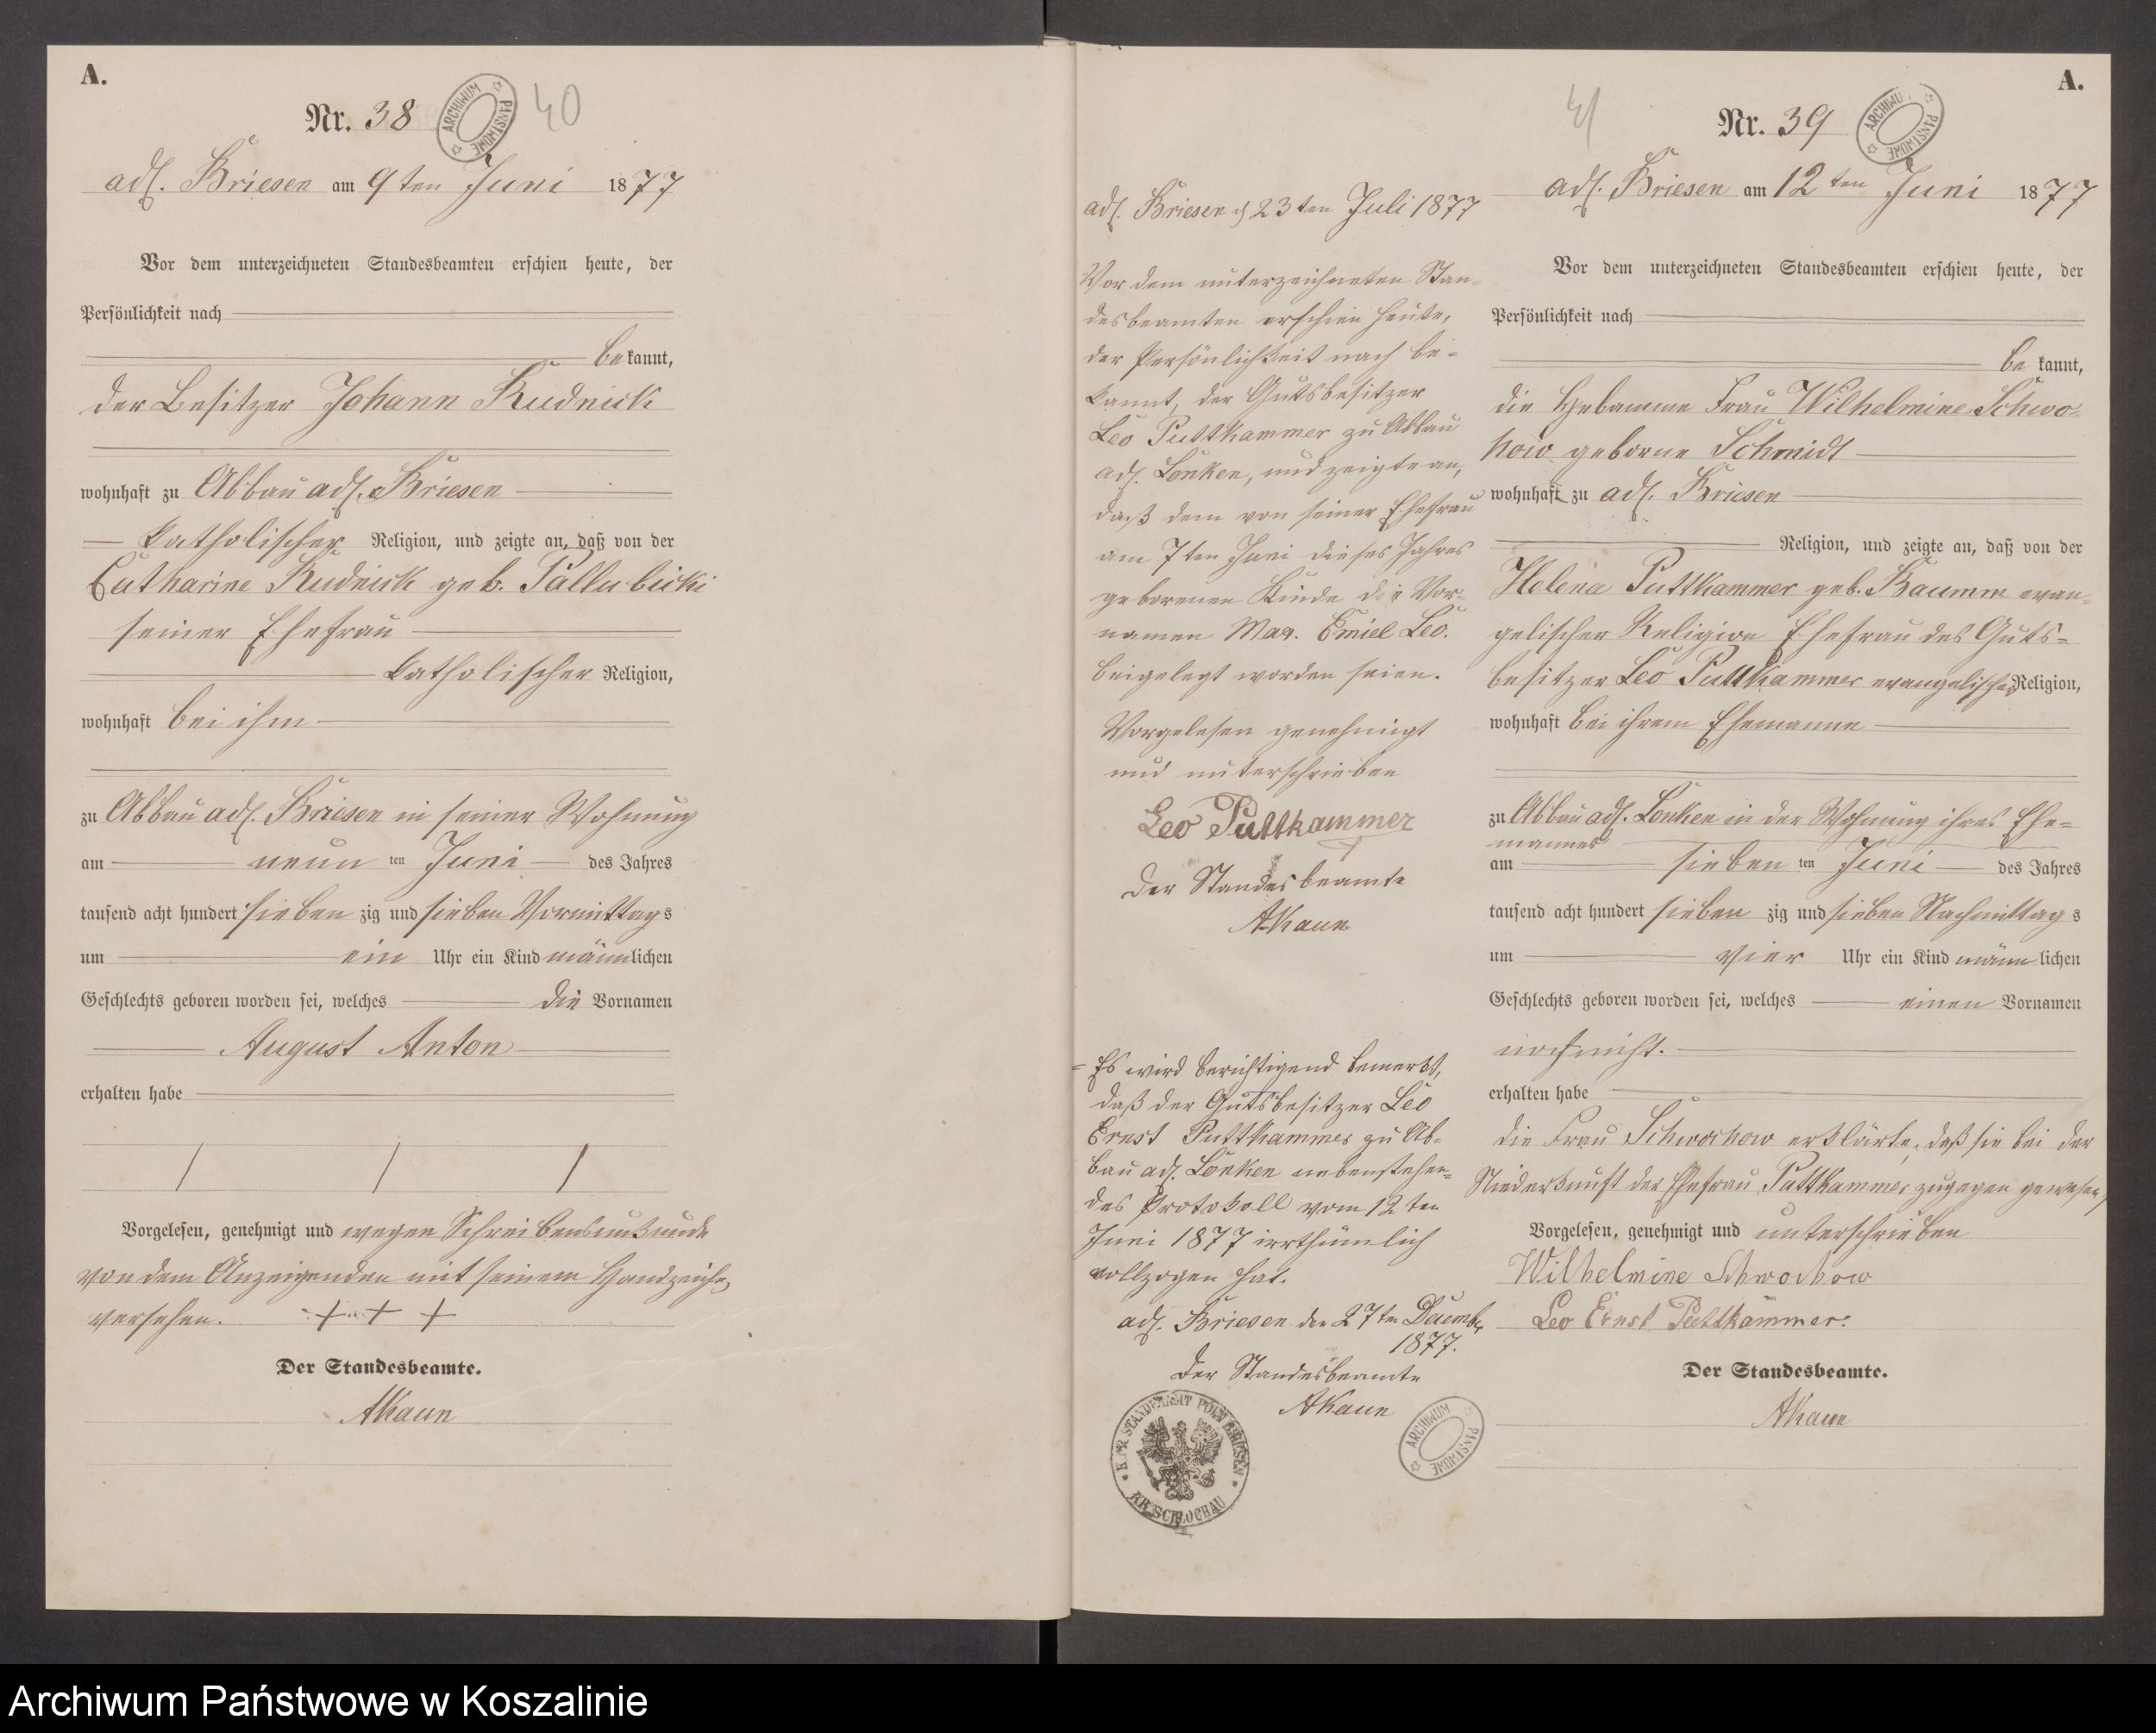 A.
Nr. 38
40
ARCHIWUM PAŃSTWOWE
adl. Briesen am 9ten Juni 1877
Vor dem unterzeichneten Standesbeamten erschien heute, der
Persönlichkeit nach
bekannt,
der Besitzer Johann Rudnick
wohnhaft zu Abbau adl. Briesen
katholischer Religion, und zeigte an, daß von der
Catharine Rudnick geb. Pallubicki
seiner Ehefrau
katholischer Religion,
wohnhaft bei ihm
zu Abbau adl. Briesen in seiner Wohnung
am neun ten Juni des Jahres
tausend acht hundert sieben zig und sieben Vormittags
um ein Uhr ein Kind männlichen
Geschlechts geboren worden sei, welches die Vornamen
August Anton
erhalten habe
Vorgelesen, genehmigt und wegen Schreibensunkunde
von dem Anzeigenden mit seinem Handzeichen
versehen. + + +
Der Standesbeamte.
AKaun
adl. Briesen d 23ten Juli 1877
Vor dem unterzeichneten Stan-
desbeamten erschien heute,
der Persönlichkeit nach be-
kannt, der Gutsbesitzer
Leo Puttkammer zu Abbau
adl. Lonken, und zeigte an,
daß dem von seiner Ehefrau
am 7ten Juni dieses Jahres
geborenen Kinde die Vor-
namen Max. Emiel Leo.
beigelegt worden seien.
Vorgelesen genehmigt
und unterschrieben
Leo Puttkammer
Der Standesbeamte
AKaun
- Es wird berichtigend bemerkt,
daß der Gutsbesitzer Leo
Ernst Puttkammer zu Ab-
bau adl. Lonken nebenstehen-
des Protokoll vom 12ten
Juni 1877 irrthümlich
vollzogen hat.
adl. Briesen den 27ten Decembr
1877.
Der Standesbeamte
AKaun
KR. SCHLOCHAU
ARCHIWUM PAŃSTWOWE
A.
41
Nr. 39
ARCHIWUM PAŃSTWOWE
adl. Briesen am 12ten Juni 1877
Vor dem unterzeichneten Standesbeamten erschien heute, der
Persönlichkeit nach
be kannt,
die Hebamme Frau Wilhelmine Schwo-
how geborne Schmidt
wohnhaft zu adl. Briesen
Religion, und zeigte an, daß von der
Helena Puttkammer geb. Baumm evan-
gelischer Religion Ehefrau des Guts-
besitzer Leo Puttkammer evangelischer Religion,
wohnhaft bei ihrem Ehemanne
zu Abbau adl. Lonken in der Wohnung ihres Ehe-
mannes
am sieben ten Juni des Jahres
tausend acht hundert sieben zig und sieben Nachmittag s
um vier Uhr ein Kind männ lichen
Geschlechts geboren worden sei, welches einen Vornamen
noch nicht.
erhalten habe
die Frau Schwochow erklärte, daß sie bei der
Niederkunft der Ehefrau Puttkammer zugegen gewesen,
Vorgelesen, genehmigt und unterschrieben
Wilhelmine Schwochow
Leo Ernst Puttkammer.
Der Standesbeamte.
AKaun
Archiwum Państwowe w Koszalinie